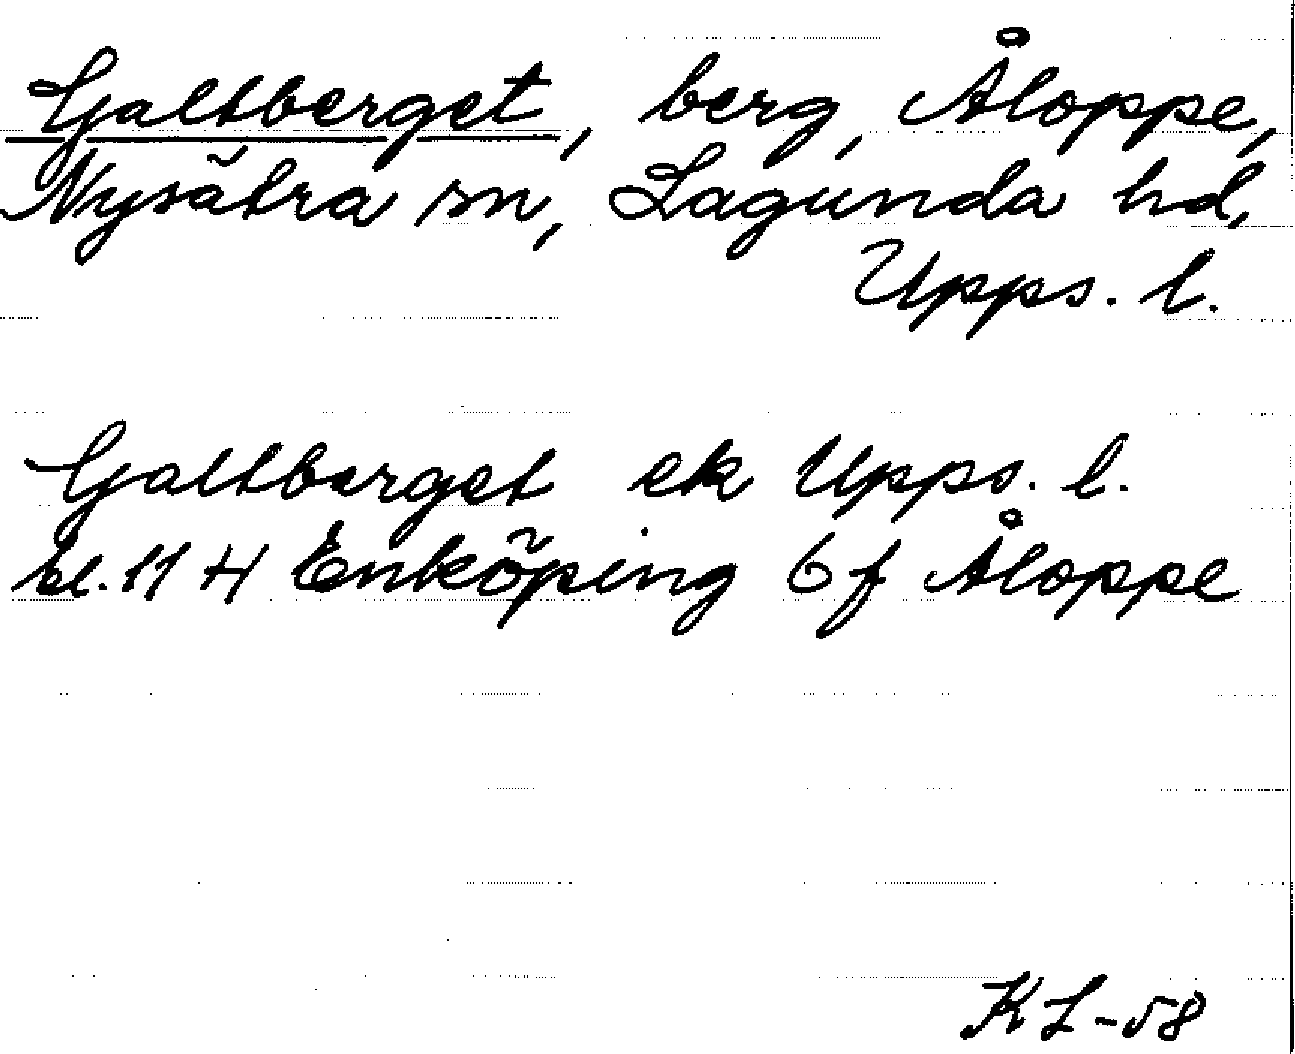 Galtberget, berg, Åloppe,
Nysätra sn, Lagunda hd,
Upps. l.
Galtberget ek Upps. l.
bl. 11 H Enköping 6 f Åloppe
KL-58